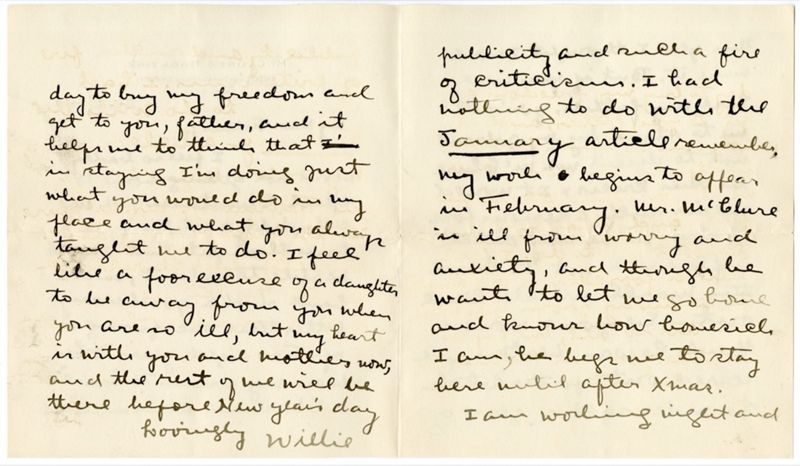 publicity and such a fire
of criticism. I had
nothing to do with the
January article remember,
my work begins to appear
in February. Mr. McClure
is ill from worry and
anxiety, and though he
wants to let me go home
and knows how homesick
I am, he begs me to stay
here until after Xmas.
I am working night and
day to buy my freedom and
get to you, father, and it
helps me to think that
in staying I'm doing just
what you would do in my
place and what you always
taught me to do. I feel
like a poor excuse of a daughter
to be away from you when
you are so ill, but my heart
is with you and mother now,
and the rest of me will be
there before New Year's day
Lovingly Willie